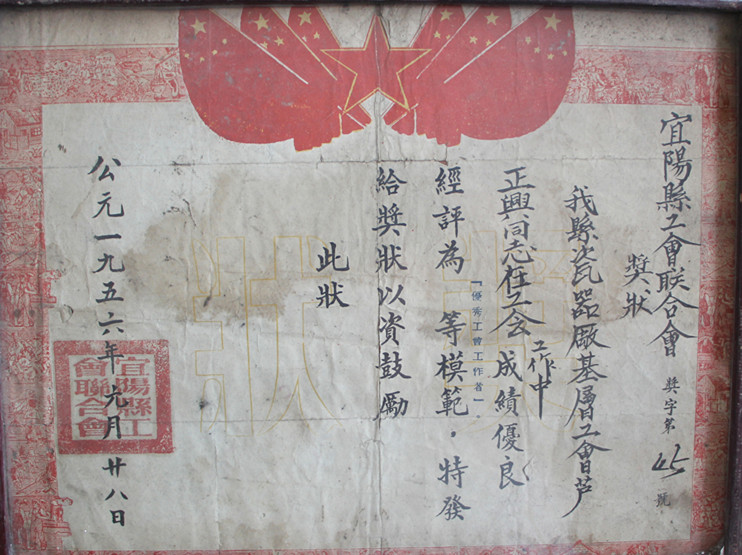 宜陽縣工會联合會
獎狀
獎字第45號
我縣瓷器廠基層工會芦
正興同志在工会工作中成績優良
「優秀工會工作者」。
經評為 等模範，特發
給獎狀以資鼓勵
此狀
公元一九五六年元月廿八日
宜陽縣工會聯合會
獎狀